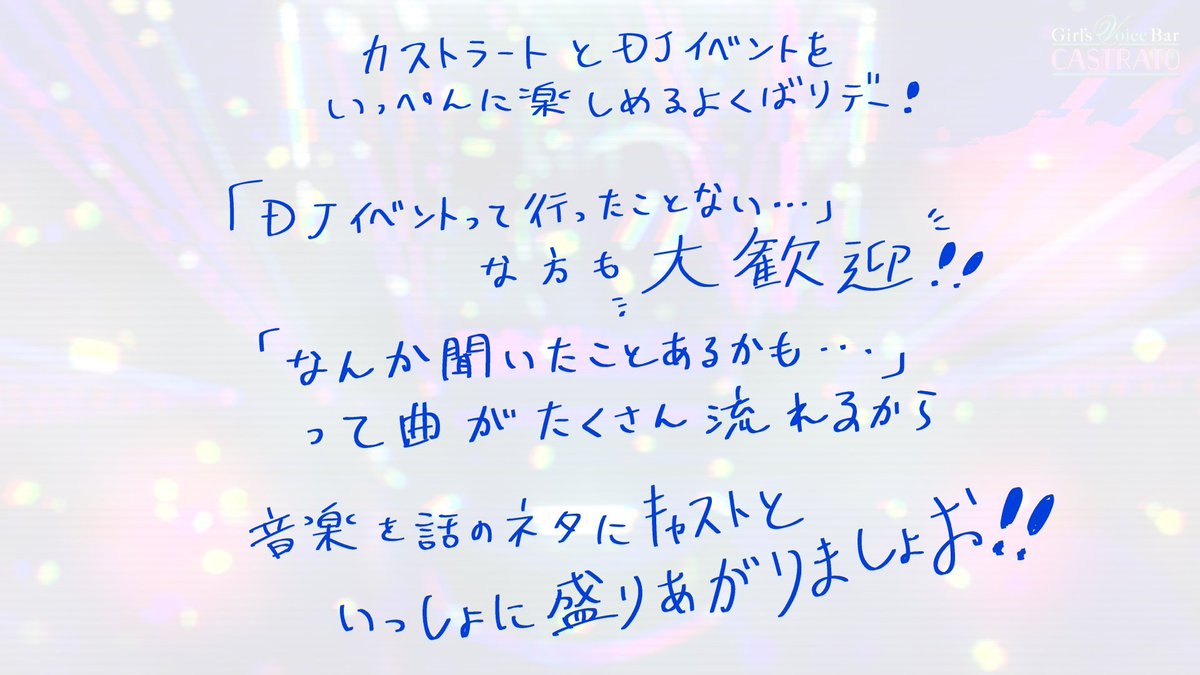 Girl's Voice Bar
CASTRATO
カストラートとDJイベントを
いっぺんに楽しめるよくばりデー!
「DJイベントって行ったことない…」
な方も大歓迎!!
「なんか聞いたことあるかも…」
って曲がたくさん流れるから
音楽を話のネタにキャストと
いっしょに盛りあがりましょお!!